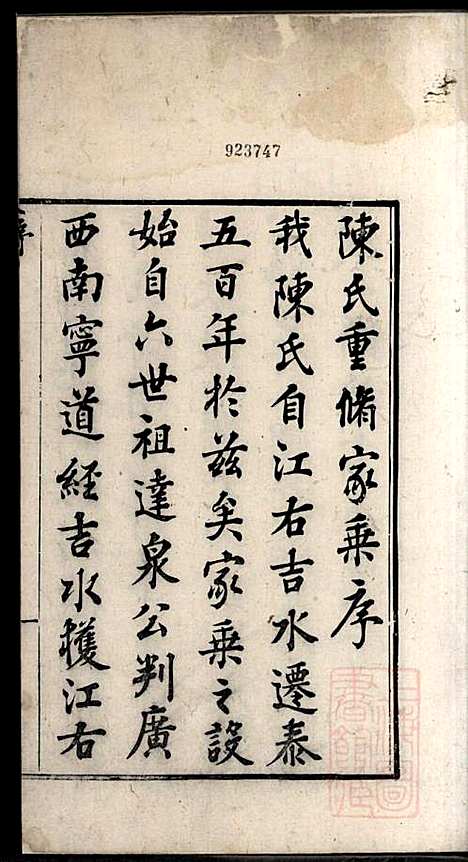 923747
陳氏重脩家乗序
我陳氏自江右吉水遷泰
五百年於兹矣家乗之設
始自六世祖達泉公判廣
西南寧道經吉水穫江右
序
一